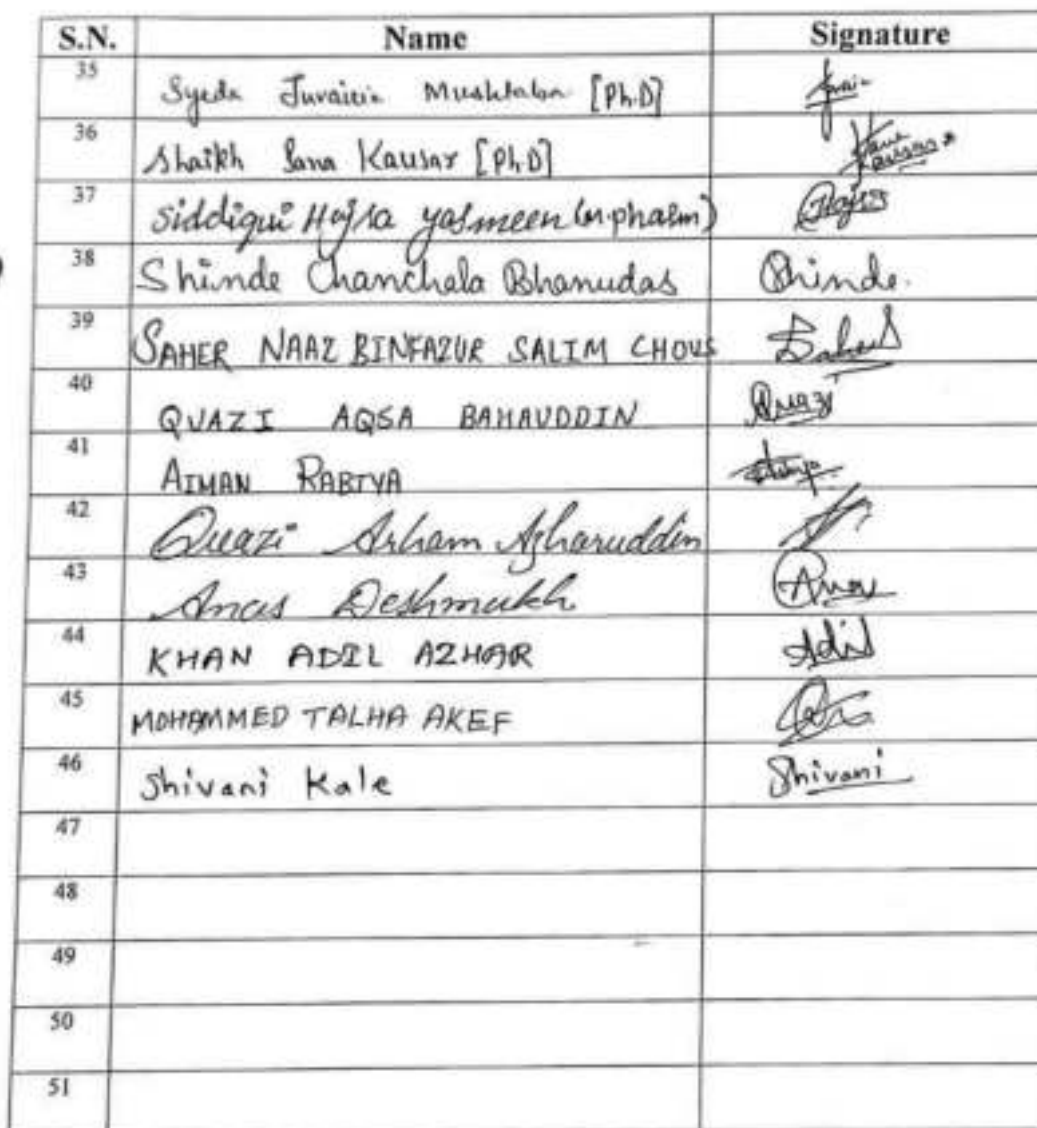 S.N. Name Signature
35 Syeda Juvairia Mushtaba [Ph.D]
36 Shaikh Sana Kausar [Ph.D] Sana Kausar
37 Siddiqui Hajra yasmeen (M.pharm) Hajra
38 Shinde Chanchala Bhanudas Shinde.
39 SAHER NAAZ BINFAZUR SALIM CHOUS Saher
40 QUAZI AQSA BAHAUDDIN Quazi
41 AIMAN RABIYA
42 Quazi Arham Azharuddin
43 Anas Deshmukh Anas
44 KHAN ADIL AZHAR Adil
45 MOHAMMED TALHA AKEF
46 Shivani Kale Shivani
47
48
49
50
51